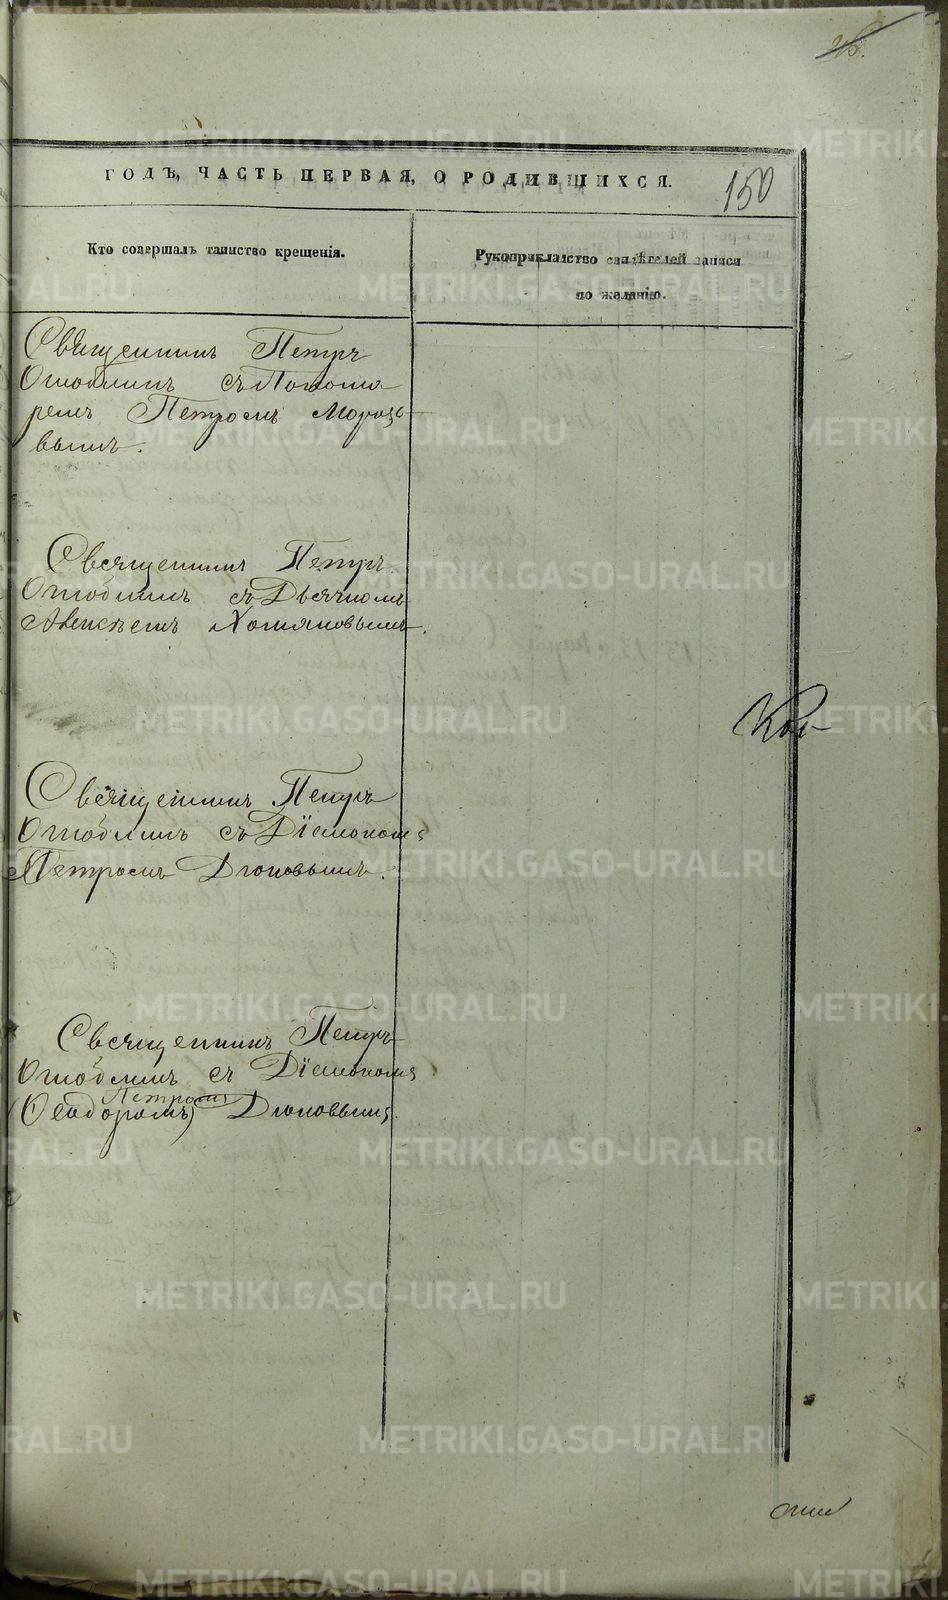 150
ГОДЪ, ЧАСТЬ ПЕРВАЯ, О РОДИВШИХСЯ.
Кто совершалъ таинство крещенія.
Рукоприкладство свидѣтелей записи
по желанію.
Священникъ Петръ
съ Понома
ремъ Петромъ Морозо
вымъ.
Священникъ Петръ
съ Дьячкомъ
Алексѣемъ Хомяковымъ.
Священникъ Петръ
съ Діакономъ
Петромъ Дюковымъ.
Священникъ Петръ
съ Діакономъ
Петромъ
(Ѳеодоромъ) Дюковымъ.
METRIKI.GASO-URAL.RU